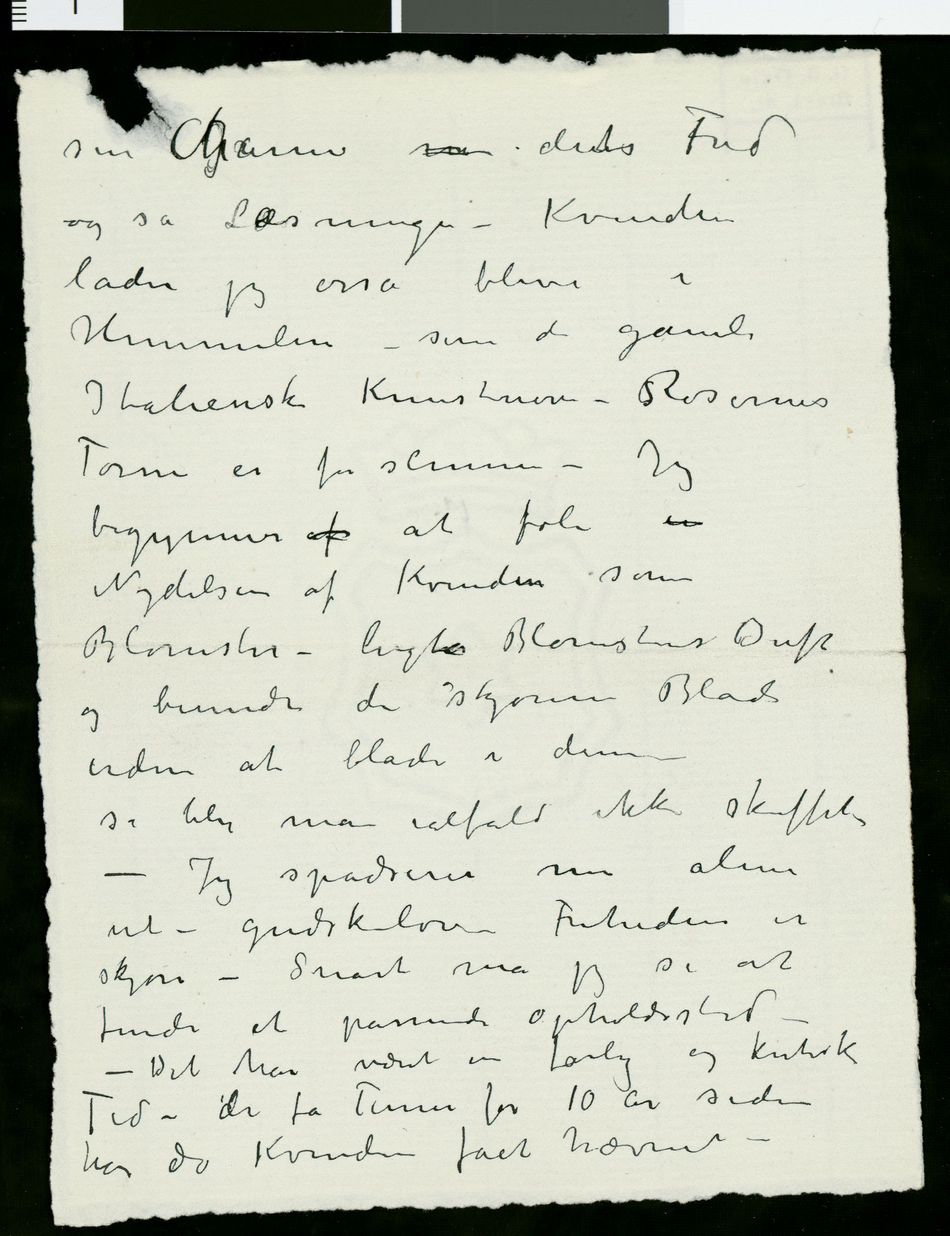 sin Charme dets Fred
og så Læsninge – Kvinden
lader jeg også blive i
Himmelen – som de gamle
Italienske Kunstnere – Rosernes
Torne er for slemme – Jeg
begynner af at føle en
Nydelsen af Kvinden som
Blomster – lugte Blomstens Duft
og beundre de skjønne Blade
uden at blade i dem –
så blir man ialfald ikke skuffet
– Jeg spadserer nu alene
ut – gudskelov Friheden er
skjøn – Snart må jeg se at
finde et passende opholdssted –
– Det har været en farlig og kritisk
Tid – de få Timer for 10 år siden
har da Kvinden fået hævnet –